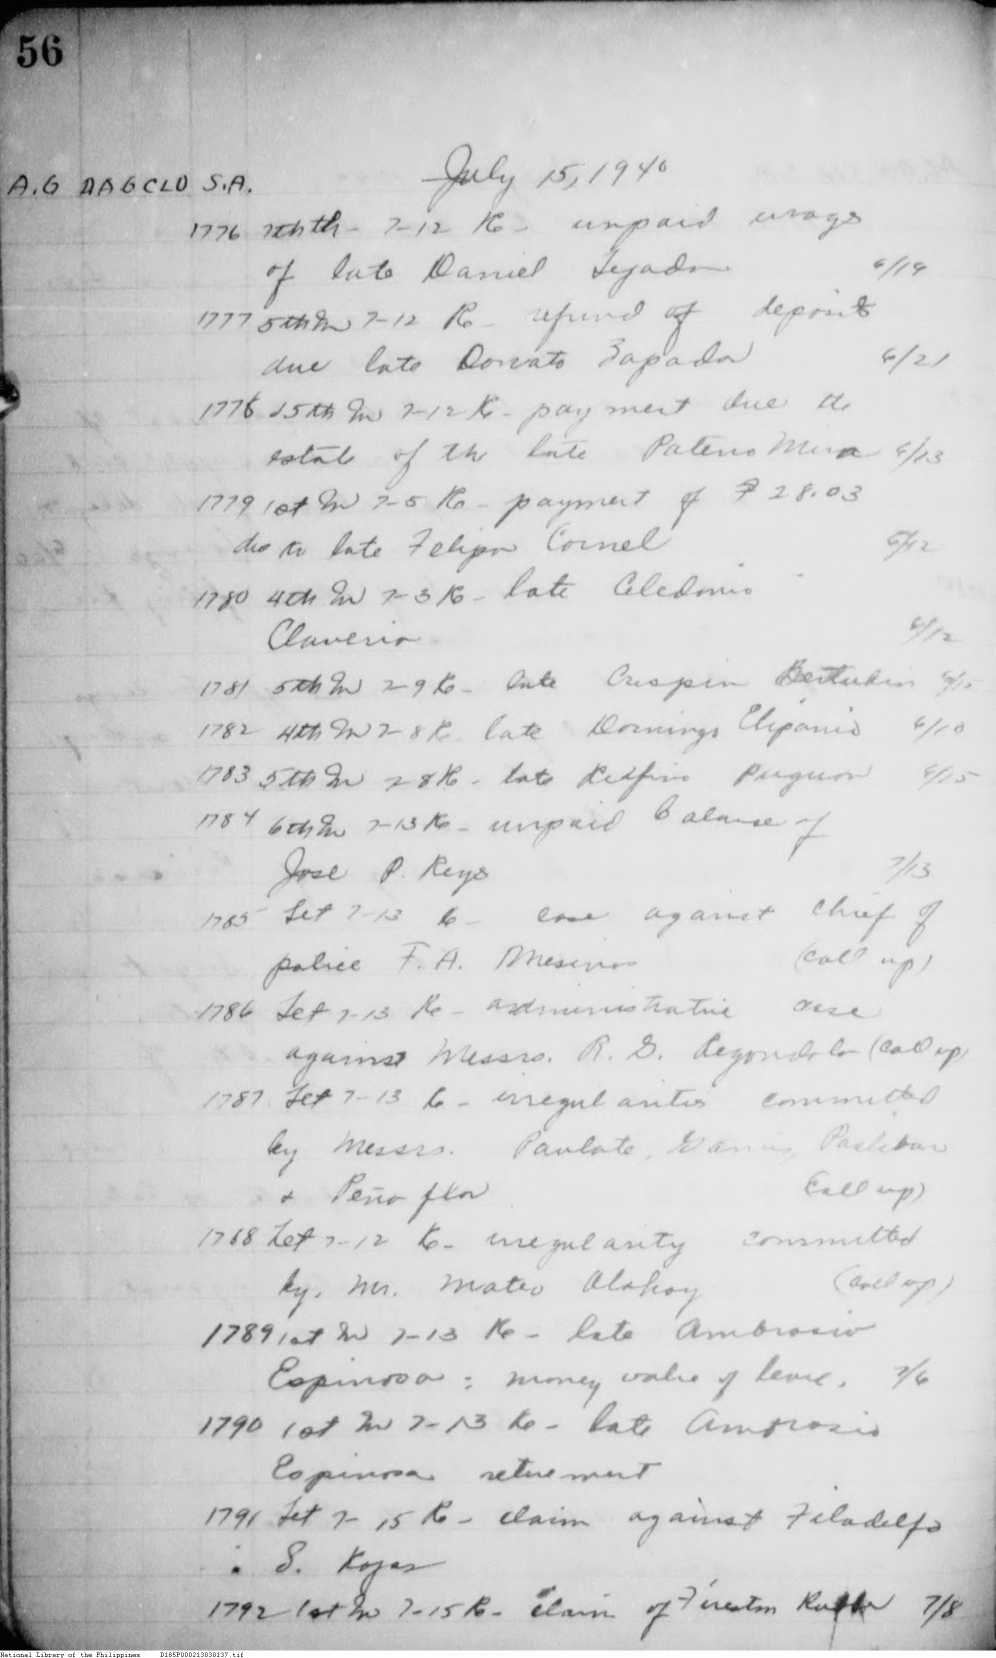 56
July 15, 1940
A.G DAGCLD S.A.
1776 7-12 Re - unpaid wages
of late Daniel Tejada 6/19
1777 5th In 7-12 Re - refund of deposits
due late Donato Zapada 6/21
1778 15th In 7-12 Re - payment due the
estate of the late Paterno Mira 6/13
1779 1st In 7-5 Re - payment of ₱ 28.03
due to late Felipa Cornel 6/12
1780 4th In 7-3 Re - late Celedonio
Claverio 6/12
1781 5th In 7-9 Re - late Crispin
1782 4th In 7-8 Re late Domingo Elipanio 6/10
1783 5th In 7-8 Re - late 6/15
1784 6th In 7-13 Re - unpaid balance of
Jose P. Reyes 7/13
1785 Let 7-13 Re - case against chief of
police F. A. (call up)
1786 Let 7-13 Re - administrative case
against Messrs. R. G. (call up)
1787 Let 7-13 Re - irregularities committed
by Messrs. Paulate,
& Peñaflor (call up)
1788 Let 7-12 Re - irregularity committed
by Mr. Mateo (call up)
1789 1st In 7-13 Re - late Ambrosio
Espinosa : money value of leave. 7/6
1790 1st In 7-13 Re - late Ambrosio
Espinosa retirement
1791 Let 7-15 Re - claim against Filadelfo
S. Rojas
1792 1st In 7-15 Re - claim of 7/8
National Library of the Philippines D185P000213038137.tif